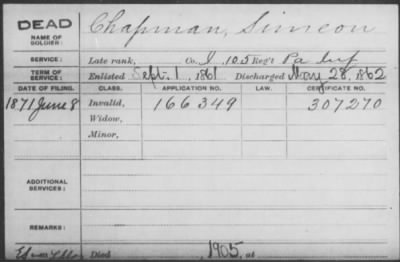 DEAD
NAME OF SOLDIER: Chapman, Simeon
SERVICE: Late rank, Co. I, 105 Reg't Pa Inf
TERM OF SERVICE: Enlisted Sept. 1, 1861 Discharged May 28, 1862
DATE OF FILING. CLASS. APPLICATION NO. LAW. CERTIFICATE NO.
1871 June 8 Invalid, 166349 307270
Widow,
Minor,
ADDITIONAL SERVICES:
REMARKS:
Died 1905, at